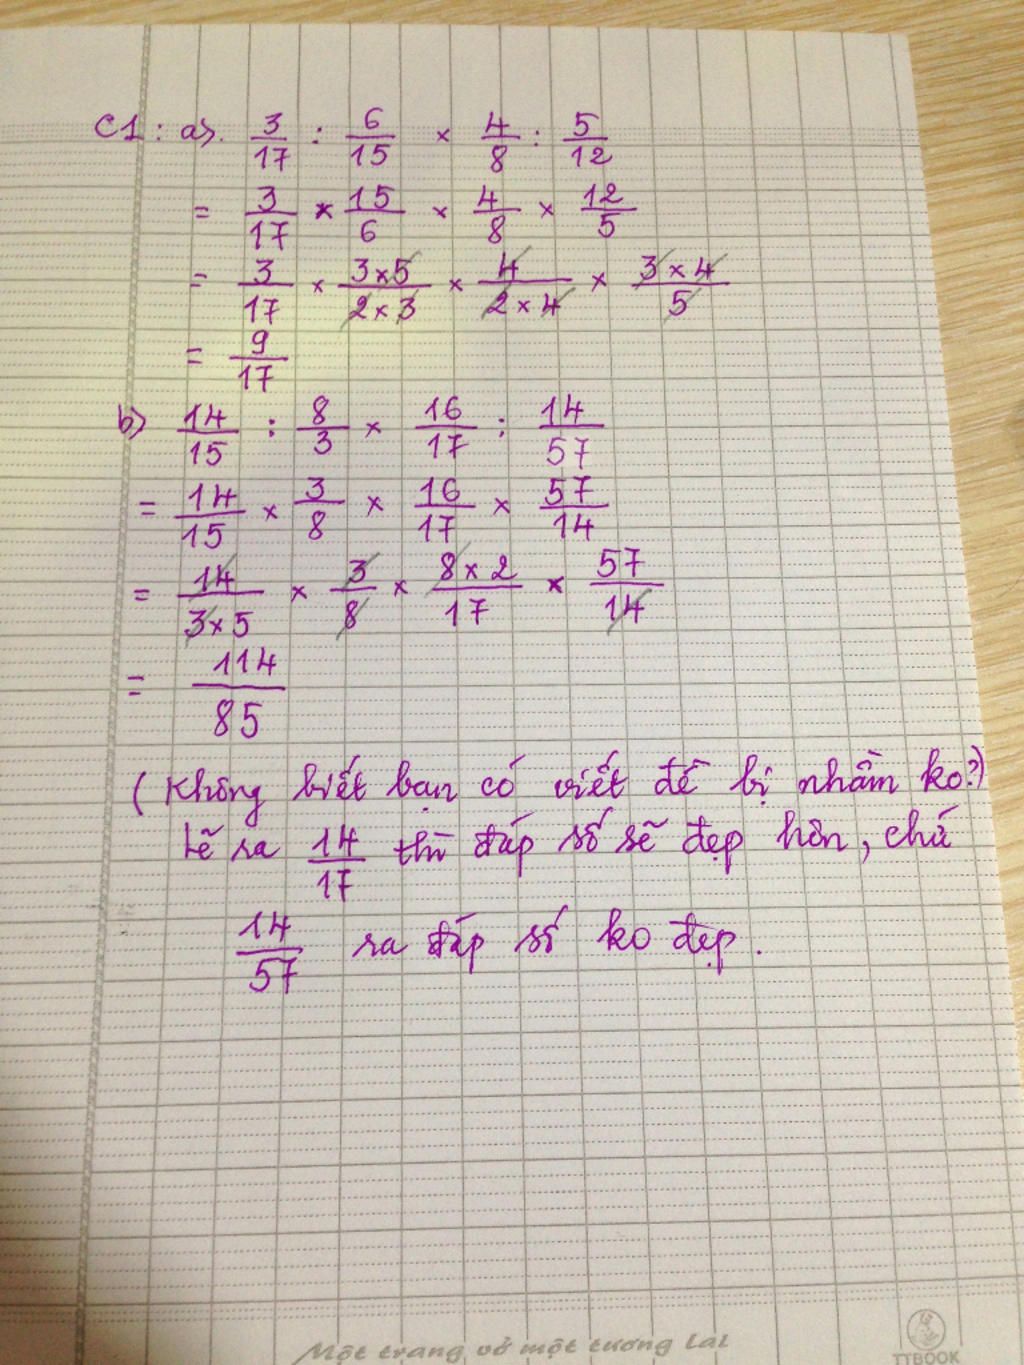 C1 : a). 3/17 : 6/15 × 4/8 : 5/12
= 3/17 × 15/6 × 4/8 × 12/5
= 3/17 × 3×5/2×3 × 4/2×4 × 3×4/5
= 9/17
b) 14/15 : 8/3 × 16/17 : 14/57
= 14/15 × 3/8 × 16/17 × 57/14
= 14/3×5 × 3/8 × 8×2/17 × 57/14
= 114/85
(Không biết bạn có viết đề bị nhầm ko?)
Lẽ ra 14/17 thì đáp số sẽ đẹp hơn, chứ
14/57 ra đáp số ko đẹp.
Một trang vở một tương lai
TTBOOK